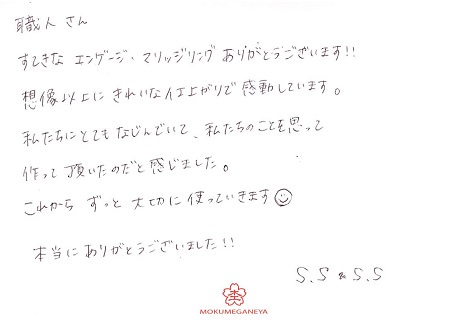 職人さん
すてきな エンゲージ・マリッジリング ありがとうございます!!
想像以上に きれいな仕上がりで 感動しています。
私たちにとても なじんでいて、私たちのことを思って
作って頂いたのだと感じました。
これから ずっと 大切に 使っていきます
本当にありがとうございました!!
S.S & S.S
杢
MOKUMEGANEYA